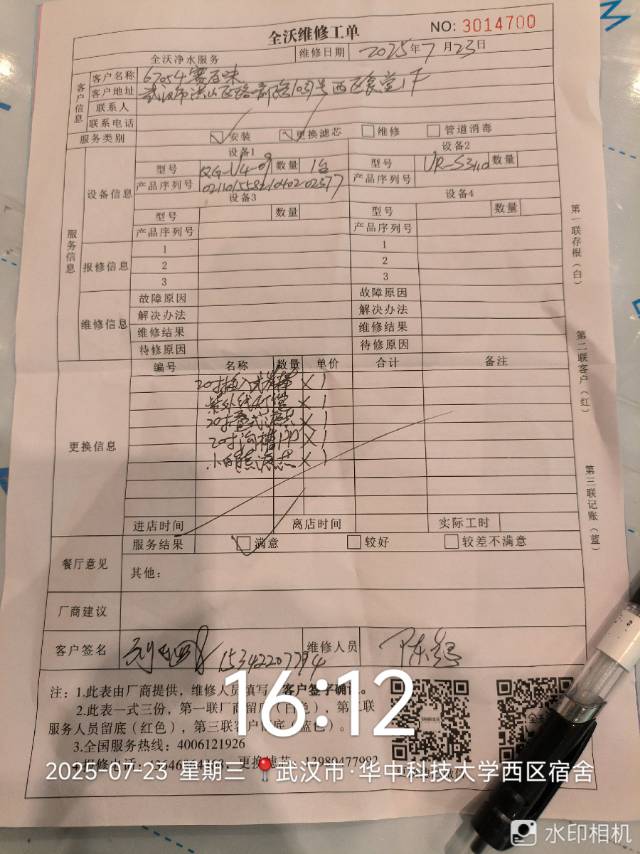 全沃维修工单
NO: 3014700
全沃净水服务 维修日期 2025年7月23日
客户信息
客户名称 67054赛百味
客户地址 武汉市洪山区珞喻路1037号西区食堂1F
联系人
联系电话
服务类别 安装 更换滤芯 维修 管道消毒
服务信息
设备信息
设备1 设备2
型号 QG-U4-09 数量 1台 型号 UR-S3410 数量
产品序列号 产品序列号
设备3 设备4
型号 数量 型号 数量
产品序列号 产品序列号
报修信息
1 1
2 2
3 3
维修信息
故障原因 故障原因
解决办法 解决办法
维修结果 维修结果
待修原因 待修原因
更换信息
编号 名称 数量 单价 合计 备注
20寸 X 1
紫外线 X 1
20寸 滤芯 X 1
20寸 X 1
滤芯 X 1
进店时间 离店时间 实际工时
餐厅意见
服务结果 满意 较好 较差不满意
其他:
厂商建议
客户签名 15342207794 维修人员 陈
注: 1.此表由厂商提供, 维修人员填写, 客户签字确认。
2.此表一式三份, 第一联厂商留底(白色), 第二联
服务人员留底(红色), 第三联客户留底(蓝色)。
3.全国服务热线: 4006121926
4.维修电话: 更换滤芯
第一联存根(白)
第二联客户(红)
第三联记账(蓝)
16:12
2025-07-23 星期三 武汉市·华中科技大学西区宿舍
水印相机